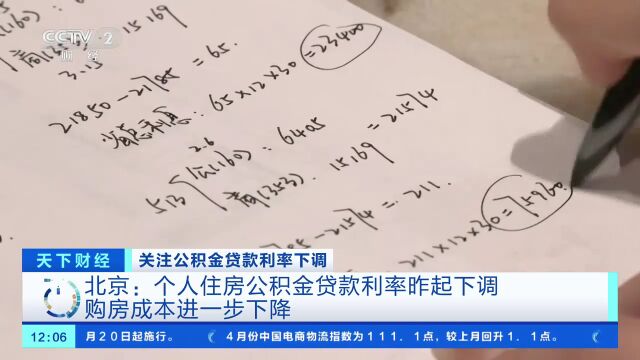 CCTV-2
财经
(160)
3.15
21850-21785=65.
省息利息:65×12×30=23400
2.6
513
公(160):6405
商(353).15169
=21574
785-21574=211.
211×12×30=75960.
天下财经
关注公积金贷款利率下调
北京:个人住房公积金贷款利率昨起下调
购房成本进一步下降
12:06
月20日起施行。
4月份中国电商物流指数为111.1点,较上月回升1.1点。